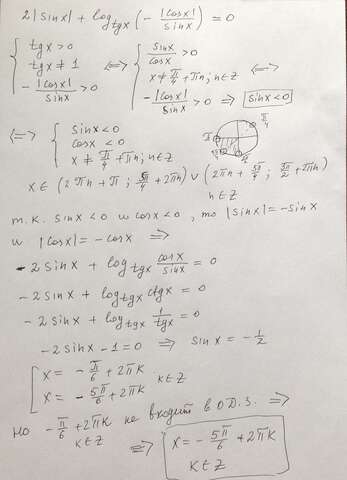 2|sinx| + log_tgx (- |cosx|/sinx) = 0
{ tgx > 0
tgx ≠ 1
- |cosx|/sinx > 0
⟺ { sinx/cosx > 0
x ≠ π/4 + πn; n∈Z
- |cosx|/sinx > 0 ⇒ sinx<0
⟺
⟺ { sinx < 0
cosx < 0
x ≠ π/4 + πn; n∈Z
π/4
π
x ∈ (2πn + π; 5π/4 + 2πn) ∪ (2πn + 5π/4; 3π/2 + 2πn)
n∈Z
т.к. sinx < 0 и cosx < 0, то |sinx| = -sinx
и |cosx| = -cosx ⇒
-2sinx + log_tgx cosx/sinx = 0
-2sinx + log_tgx ctgx = 0
-2sinx + log_tgx 1/tgx = 0
-2sinx - 1 = 0 ⇒ sinx = -1/2
[ x = - π/6 + 2πk
x = - 5π/6 + 2πk
k∈Z
но - π/6 + 2πk не входит в О.Д.З. ⇒
k∈Z
⇒ x = - 5π/6 + 2πk
k∈Z